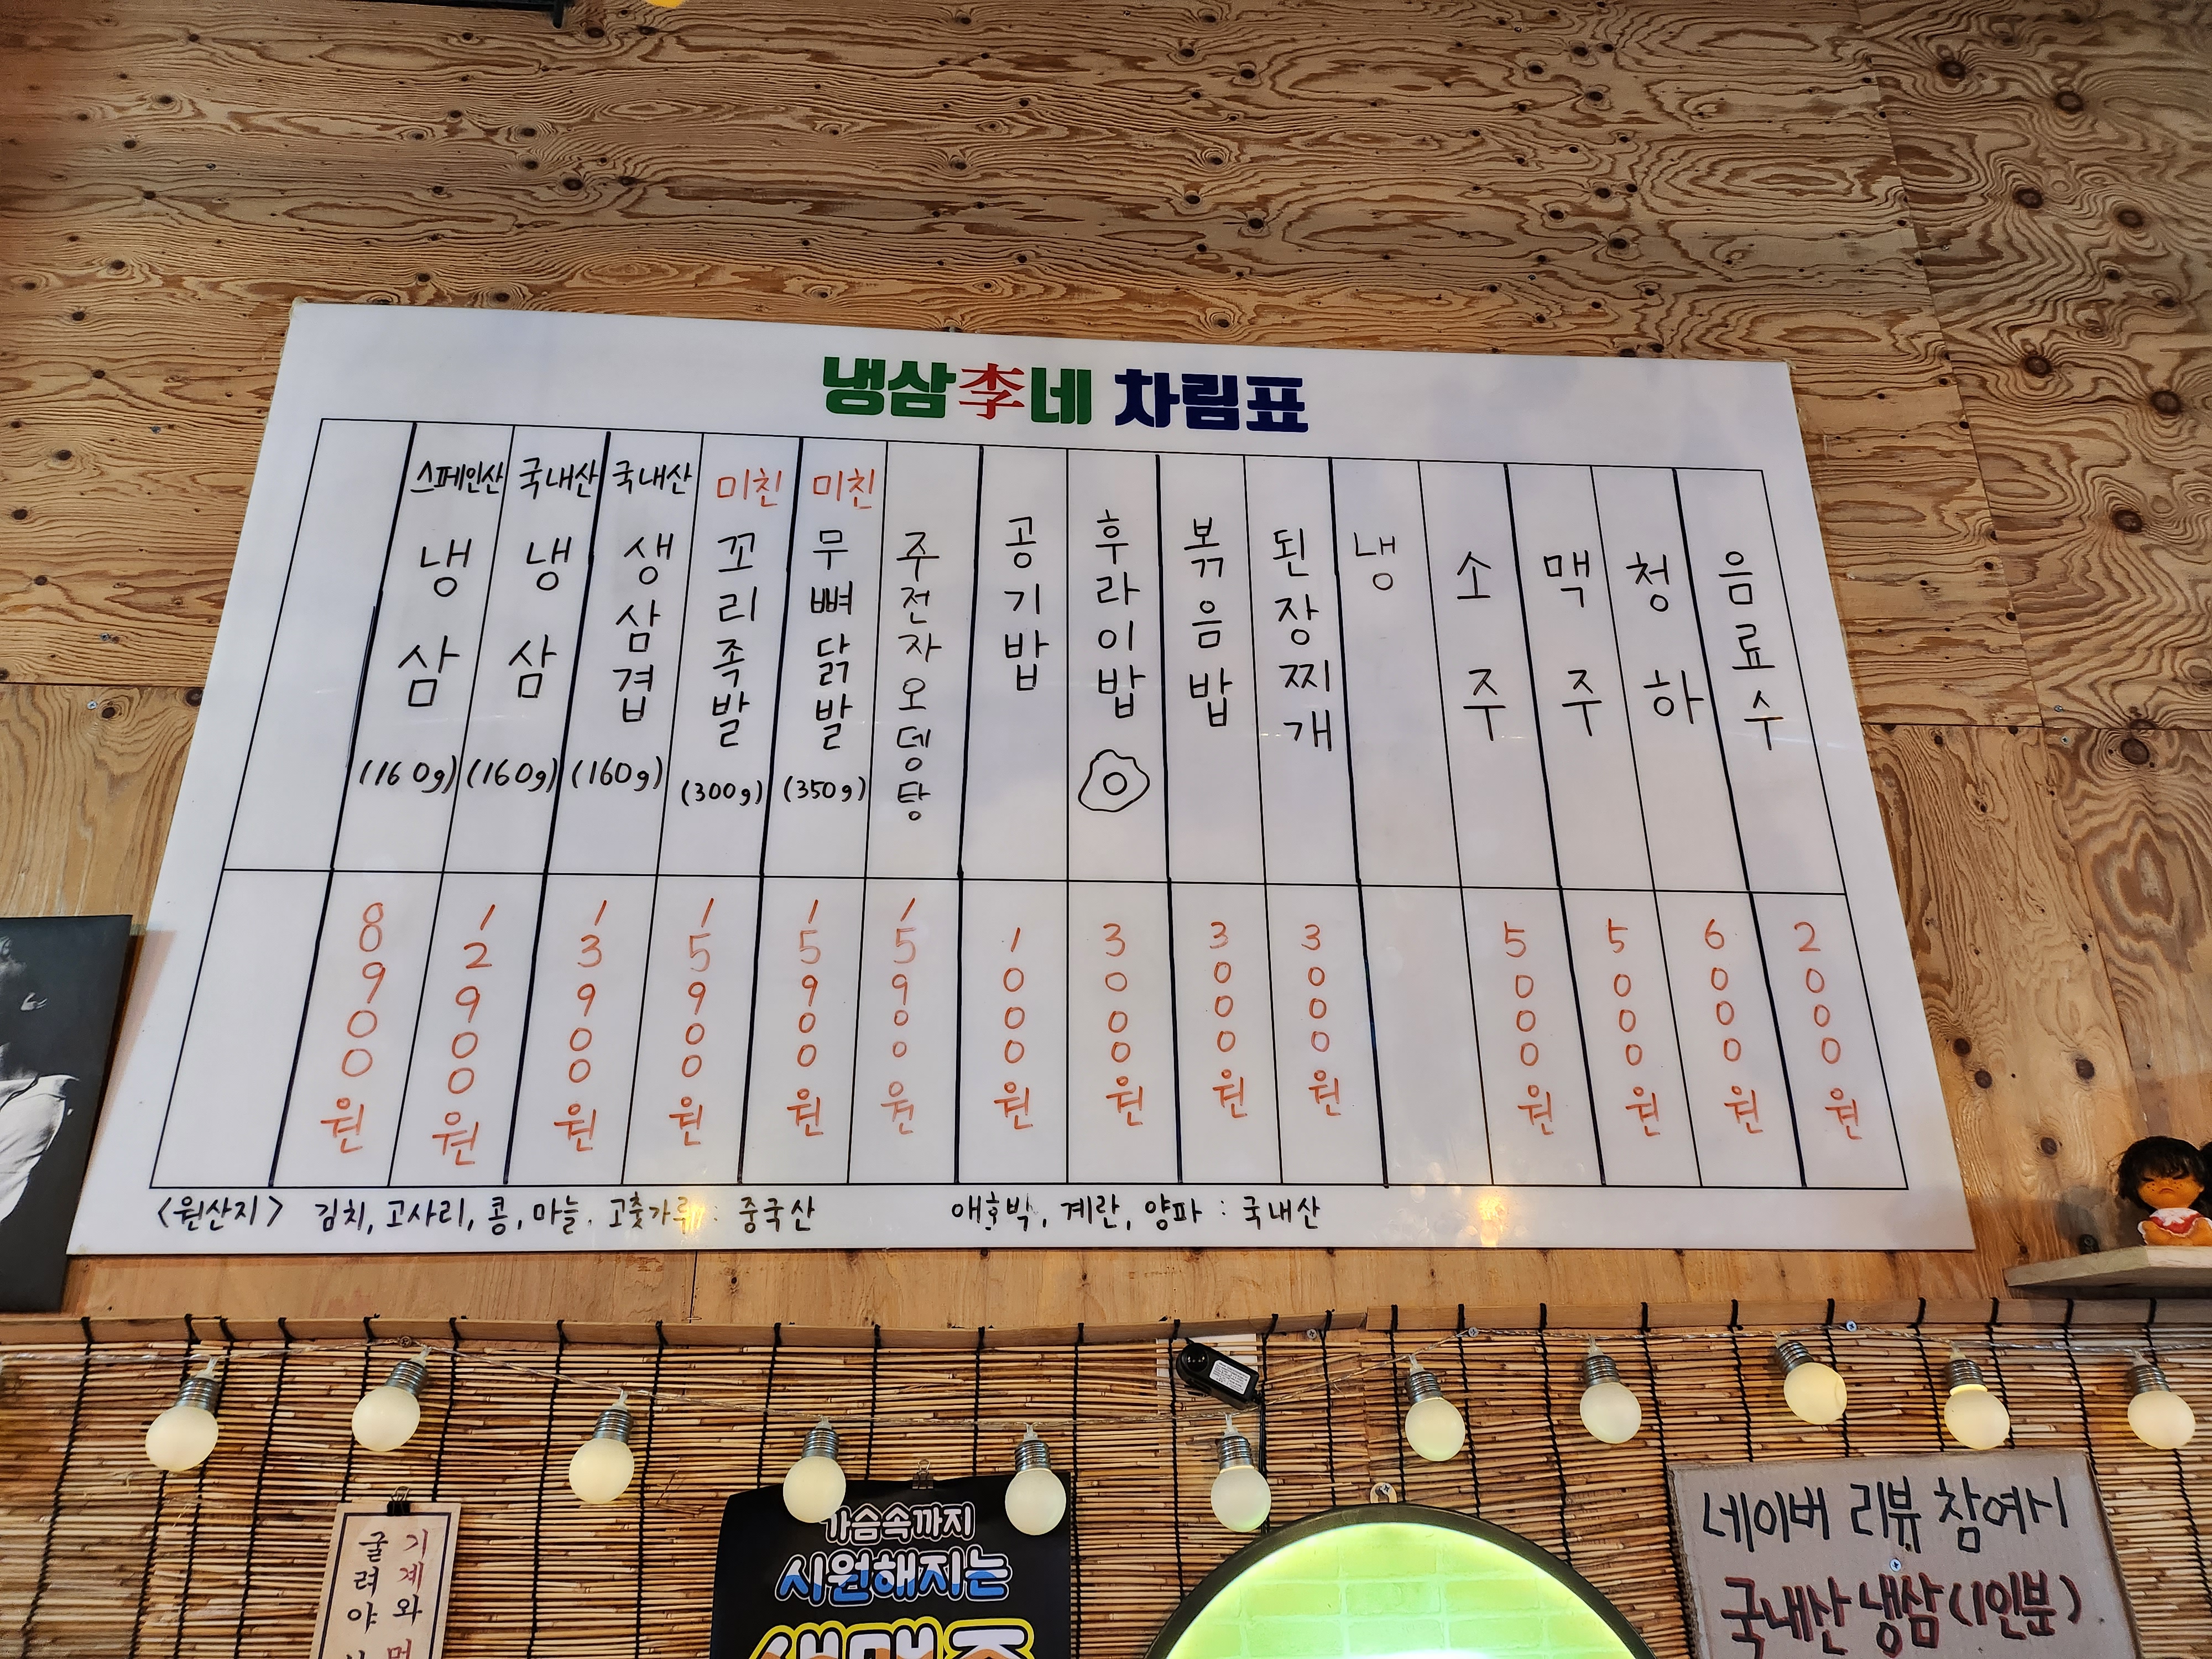 냉삼李네 차림표
스페인산 냉삼 (160g) 8900원
국내산 냉삼 (160g) 12900원
국내산 생삼겹 (160g) 13900원
미친 꼬리족발 (300g) 15900원
미친 무뼈닭발 (350g) 15900원
주전자오뎅탕 15900원
공기밥 1000원
후라이밥 3000원
볶음밥 3000원
된장찌개 3000원
냉
소주 5000원
맥주 5000원
청하 6000원
음료수 2000원
<원산지> 김치, 고사리, 콩, 마늘, 고춧가루 : 중국산 애호박, 계란, 양파 : 국내산
기계와
굴려야
가슴속까지
시원해지는
생맥주
네이버 리뷰 참여시
국내산 냉삼 (1인분)